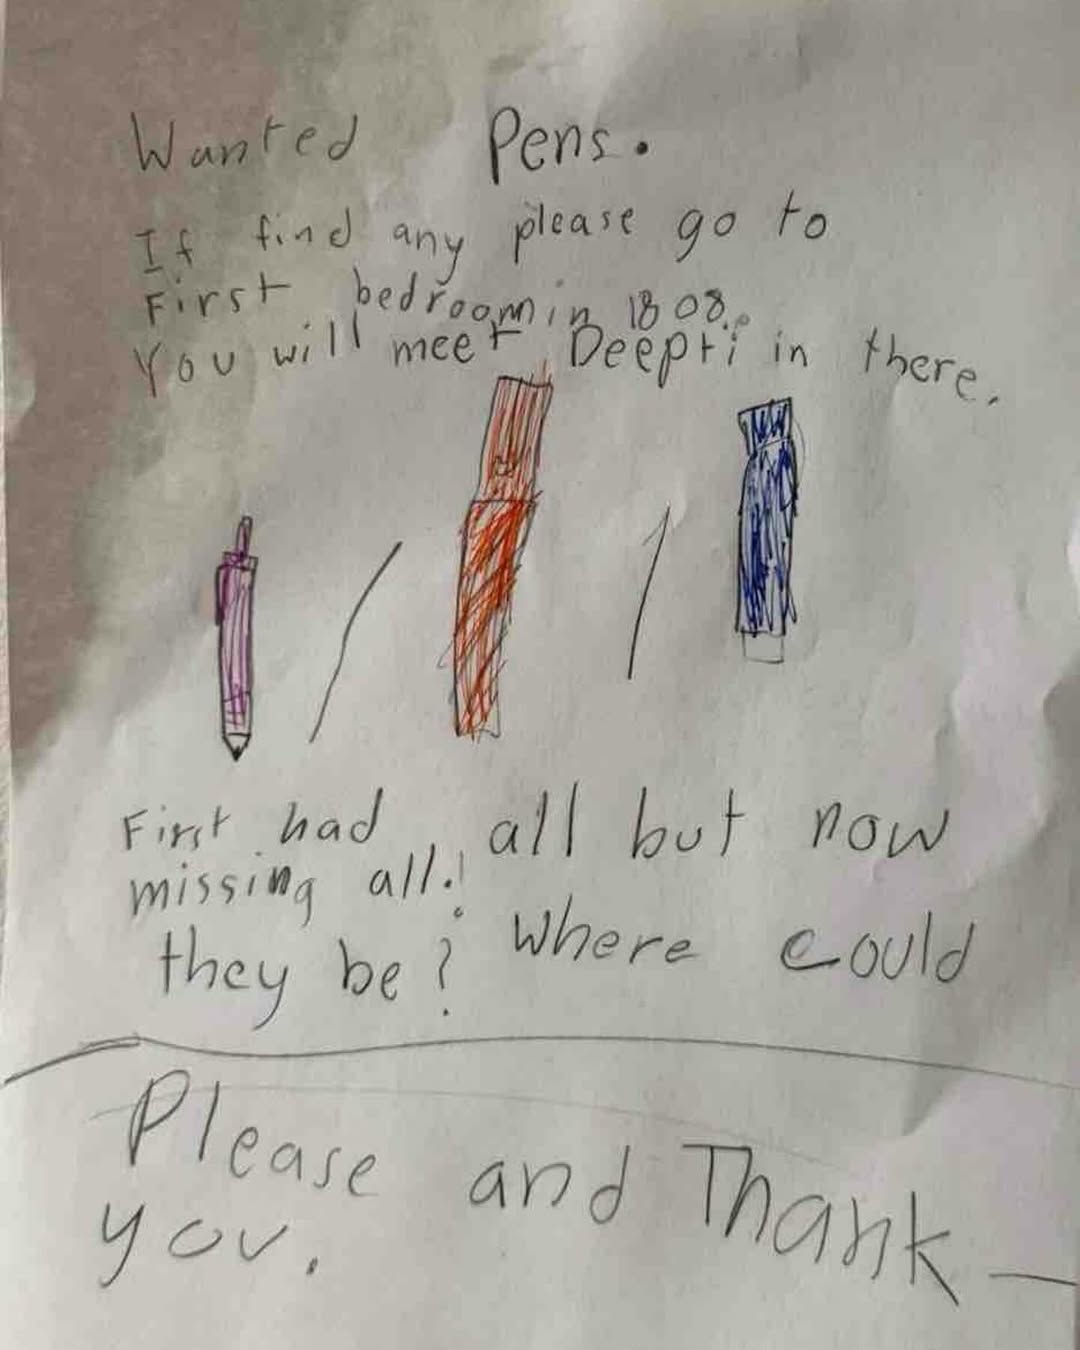 Wanted Pens.
If find any please go to
First bedroom in 1808.
You will meet Deepti in there.
First had all but now
missing all.! Where could
they be?
Please and Thank-
you.